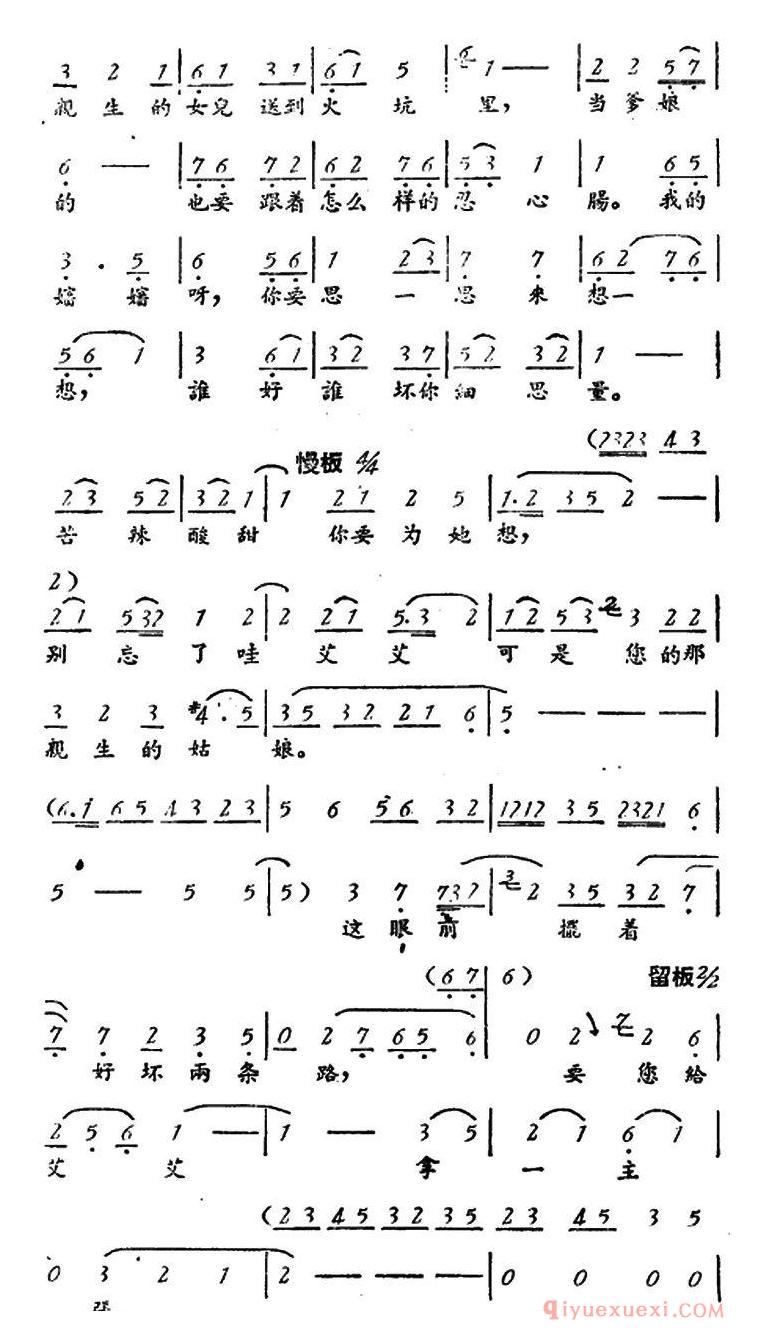 3 2 1 | 6 1 3 1 | 6 1 5 6 | 1 — | 2 2 5 7 |
親生的女兒送到火坑里，当爹娘
6 — | 7 6 7 2 | 6 2 7 6 | 5 3 1 | 1 6 5 |
的也要跟着怎么样的忍心腸。我的
3 . 5 | 6 5 6 | 1 2 3 | 7 7 | 6 2 7 6 |
嬸嬸呀，你要思一思來想一
5 6 1 | 3 6 1 | 3 2 3 7 | 5 2 3 2 | 1 — |
想，誰好誰坏你細思量。
慢板 4/4 (2323 4 3
2 3 5 2 | 3 2 1 | 1 2 1 2 5 | 1. 2 3 5 2 — |
苦辣酸甜你要为她想，
2)
2 1 5 32 1 2 | 2 2 1 5. 3 2 | 1 2 5 3 2 3 2 2 |
别忘了哇艾艾可是您的那
3 2 3 #4 . 5 | 3 5 3 2 2 1 6 | 5 — — — |
親生的姑娘。
(6. 1 6 5 4 3 2 3 | 5 6 5 6 3 2 | 1212 3 5 2321 6 |
5 — 5 5 | 5) 3 7 732 | 3 2 3 5 3 2 7 |
这眼前擺着
(6 7 | 6) 留板 2/2
7 7 2 3 5 | 0 2 7 6 5 6 | 0 2 7 2 6 |
好坏兩条路，要您給
2 5 6 1 — | 1 — 3 5 | 2 1 6 1 |
艾艾拿一主
(2 3 4 5 3 2 3 5 2 3 4 5 3 5
0 3 2 1 | 2 — — — | 0 0 0 0 |
張
qiyuexuexi.com